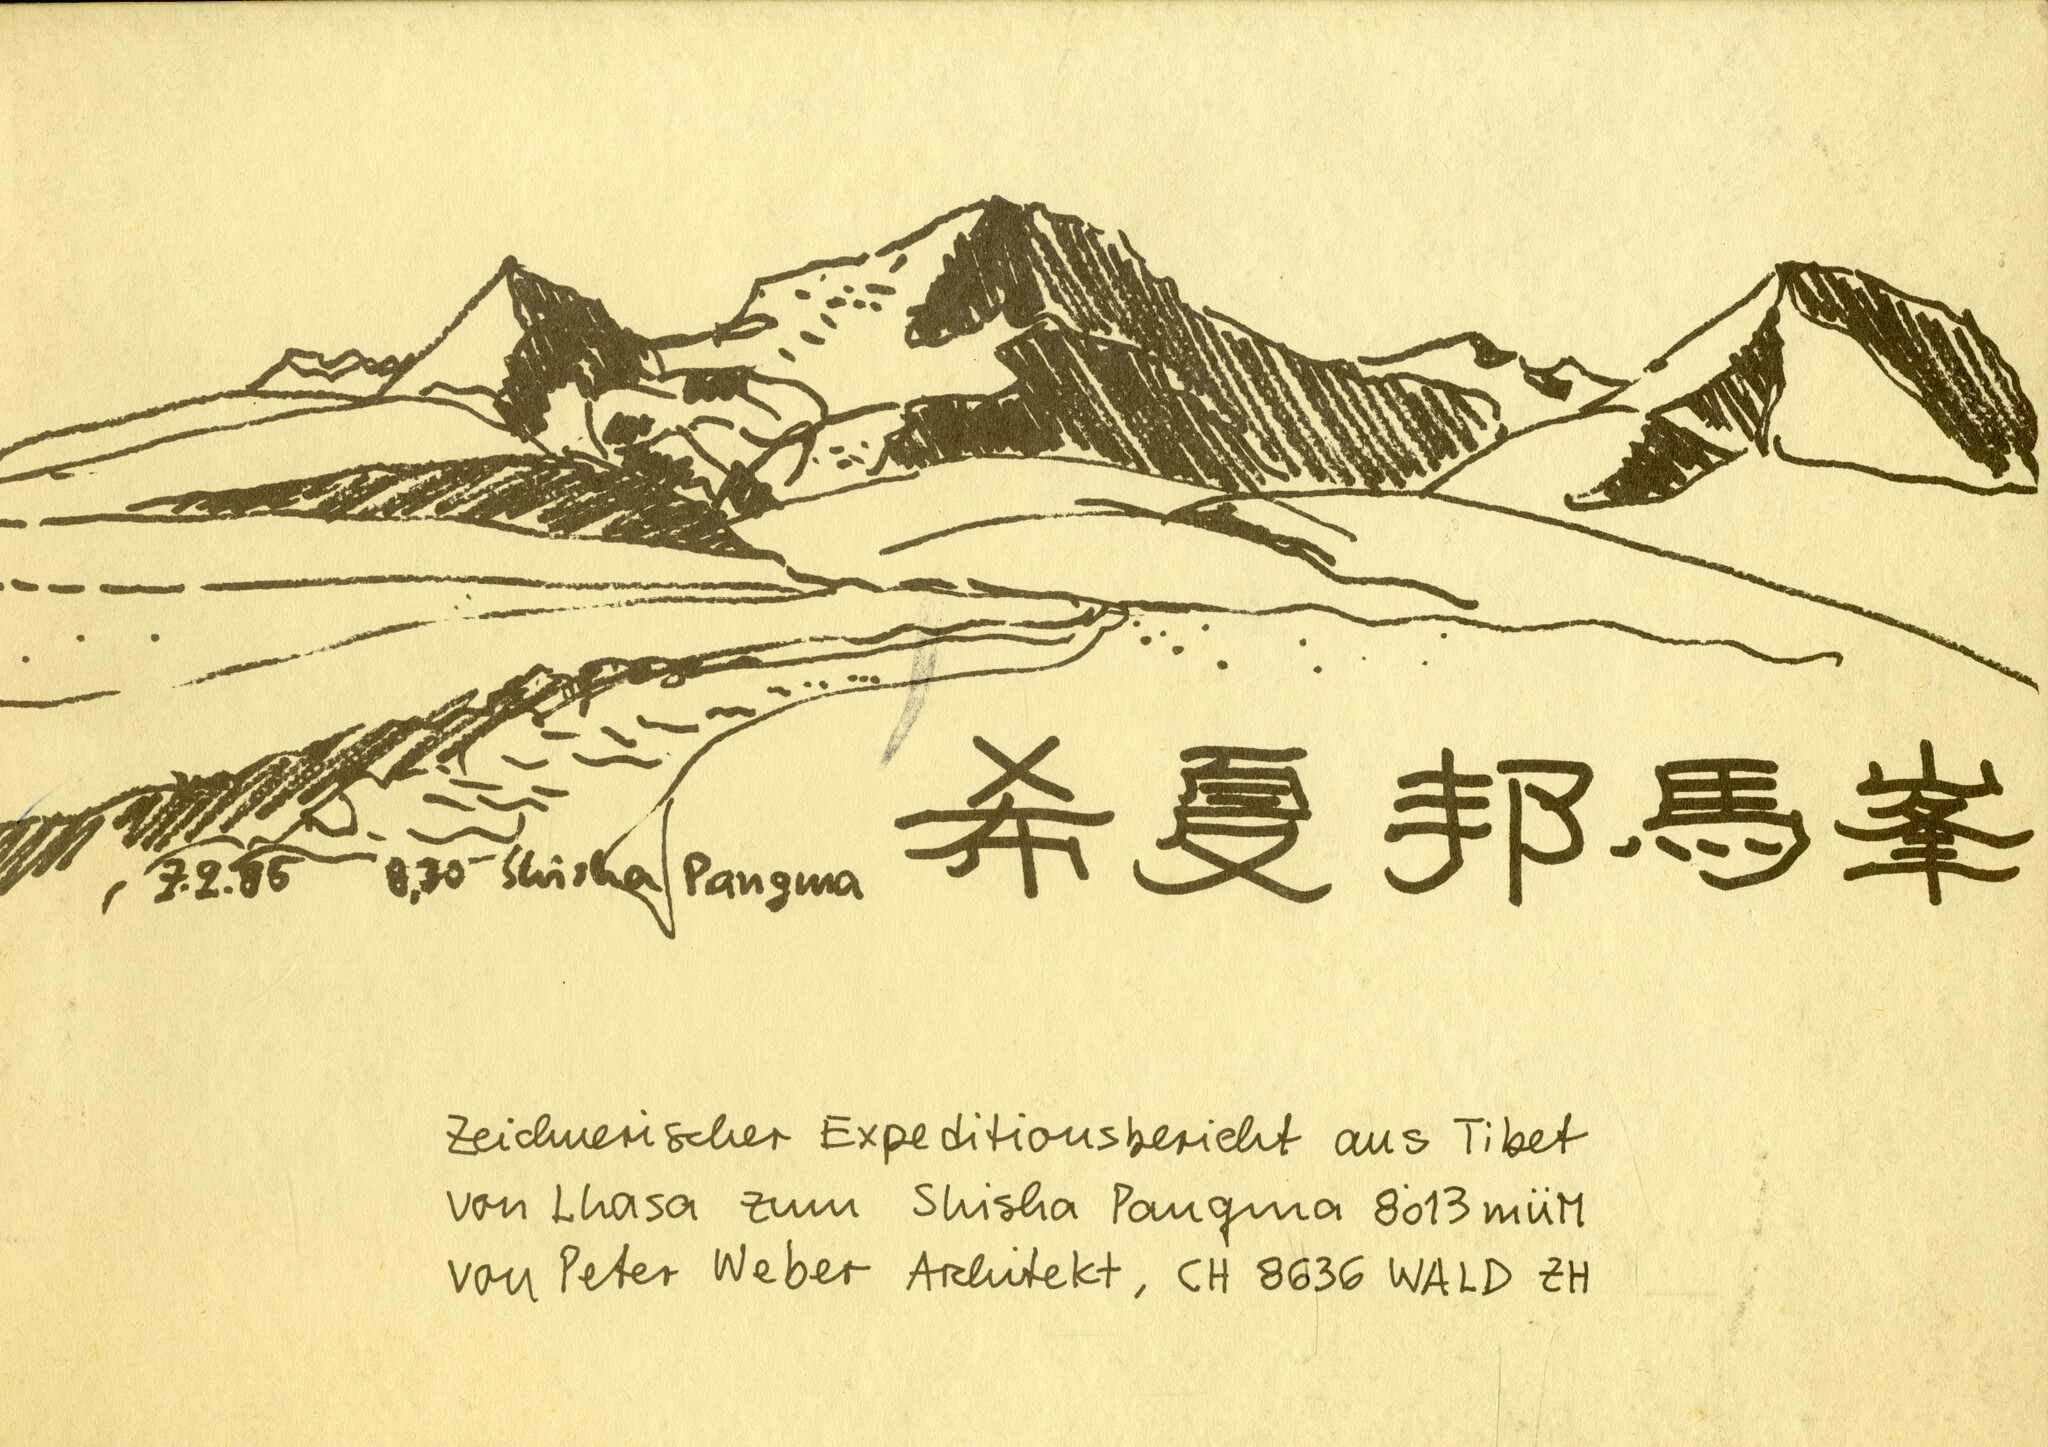 7.2.86 8,30 Shisha Pangma 希夏邦馬峯
Zeichnerischer Expeditionsbericht aus Tibet
von Lhasa zum Shisha Pangma 8013 müM
von Peter Weber Architekt, CH 8636 WALD ZH